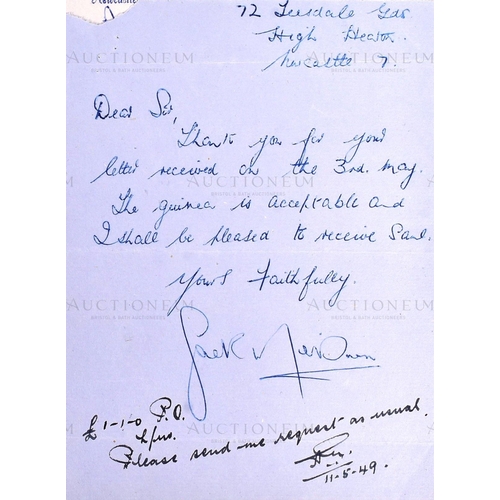 72 Teesdale Gds.
High Heaton.
Newcastle 7.
Dear Sir,
Thank you for your
letter received on the 3rd. May.
The guinea is acceptable and
I shall be pleased to receive same.
Yours Faithfully.
Jack
£1-1-0 P.O.
Please send me request as usual.
11-5-49.
AUCTIONEUM
BRISTOL & BATH AUCTIONEERS